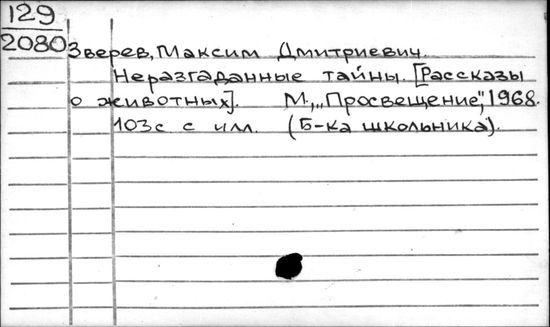 129
2080
Зверев, Максим Дмитриевич.
Неразгаданные тайны. [Рассказы
о животных]. М., „Просвещение", 1968.
103с с илл. (Б-ка школьника).